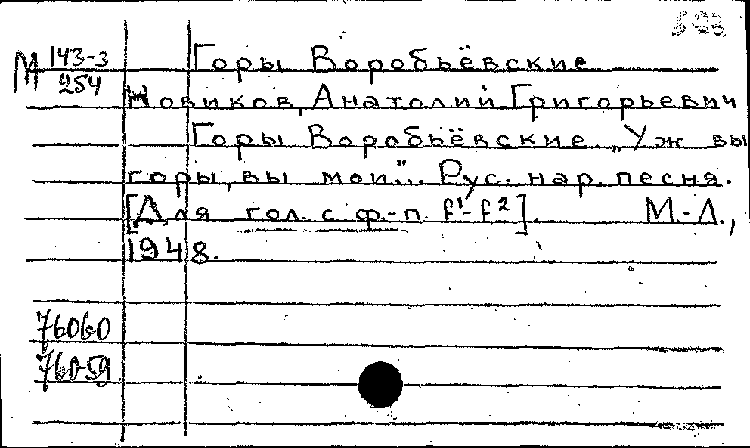 М 143-3 Горы Воробьёвские
254
Новиков, Анатолий Григорьевич
Горы Воробьёвские „Уж вы
горы, вы мои“... Рус. нар. песня.
[Для гол. с ф.-п. f¹-f²]. М.-Л.,
1948.
76060
76059